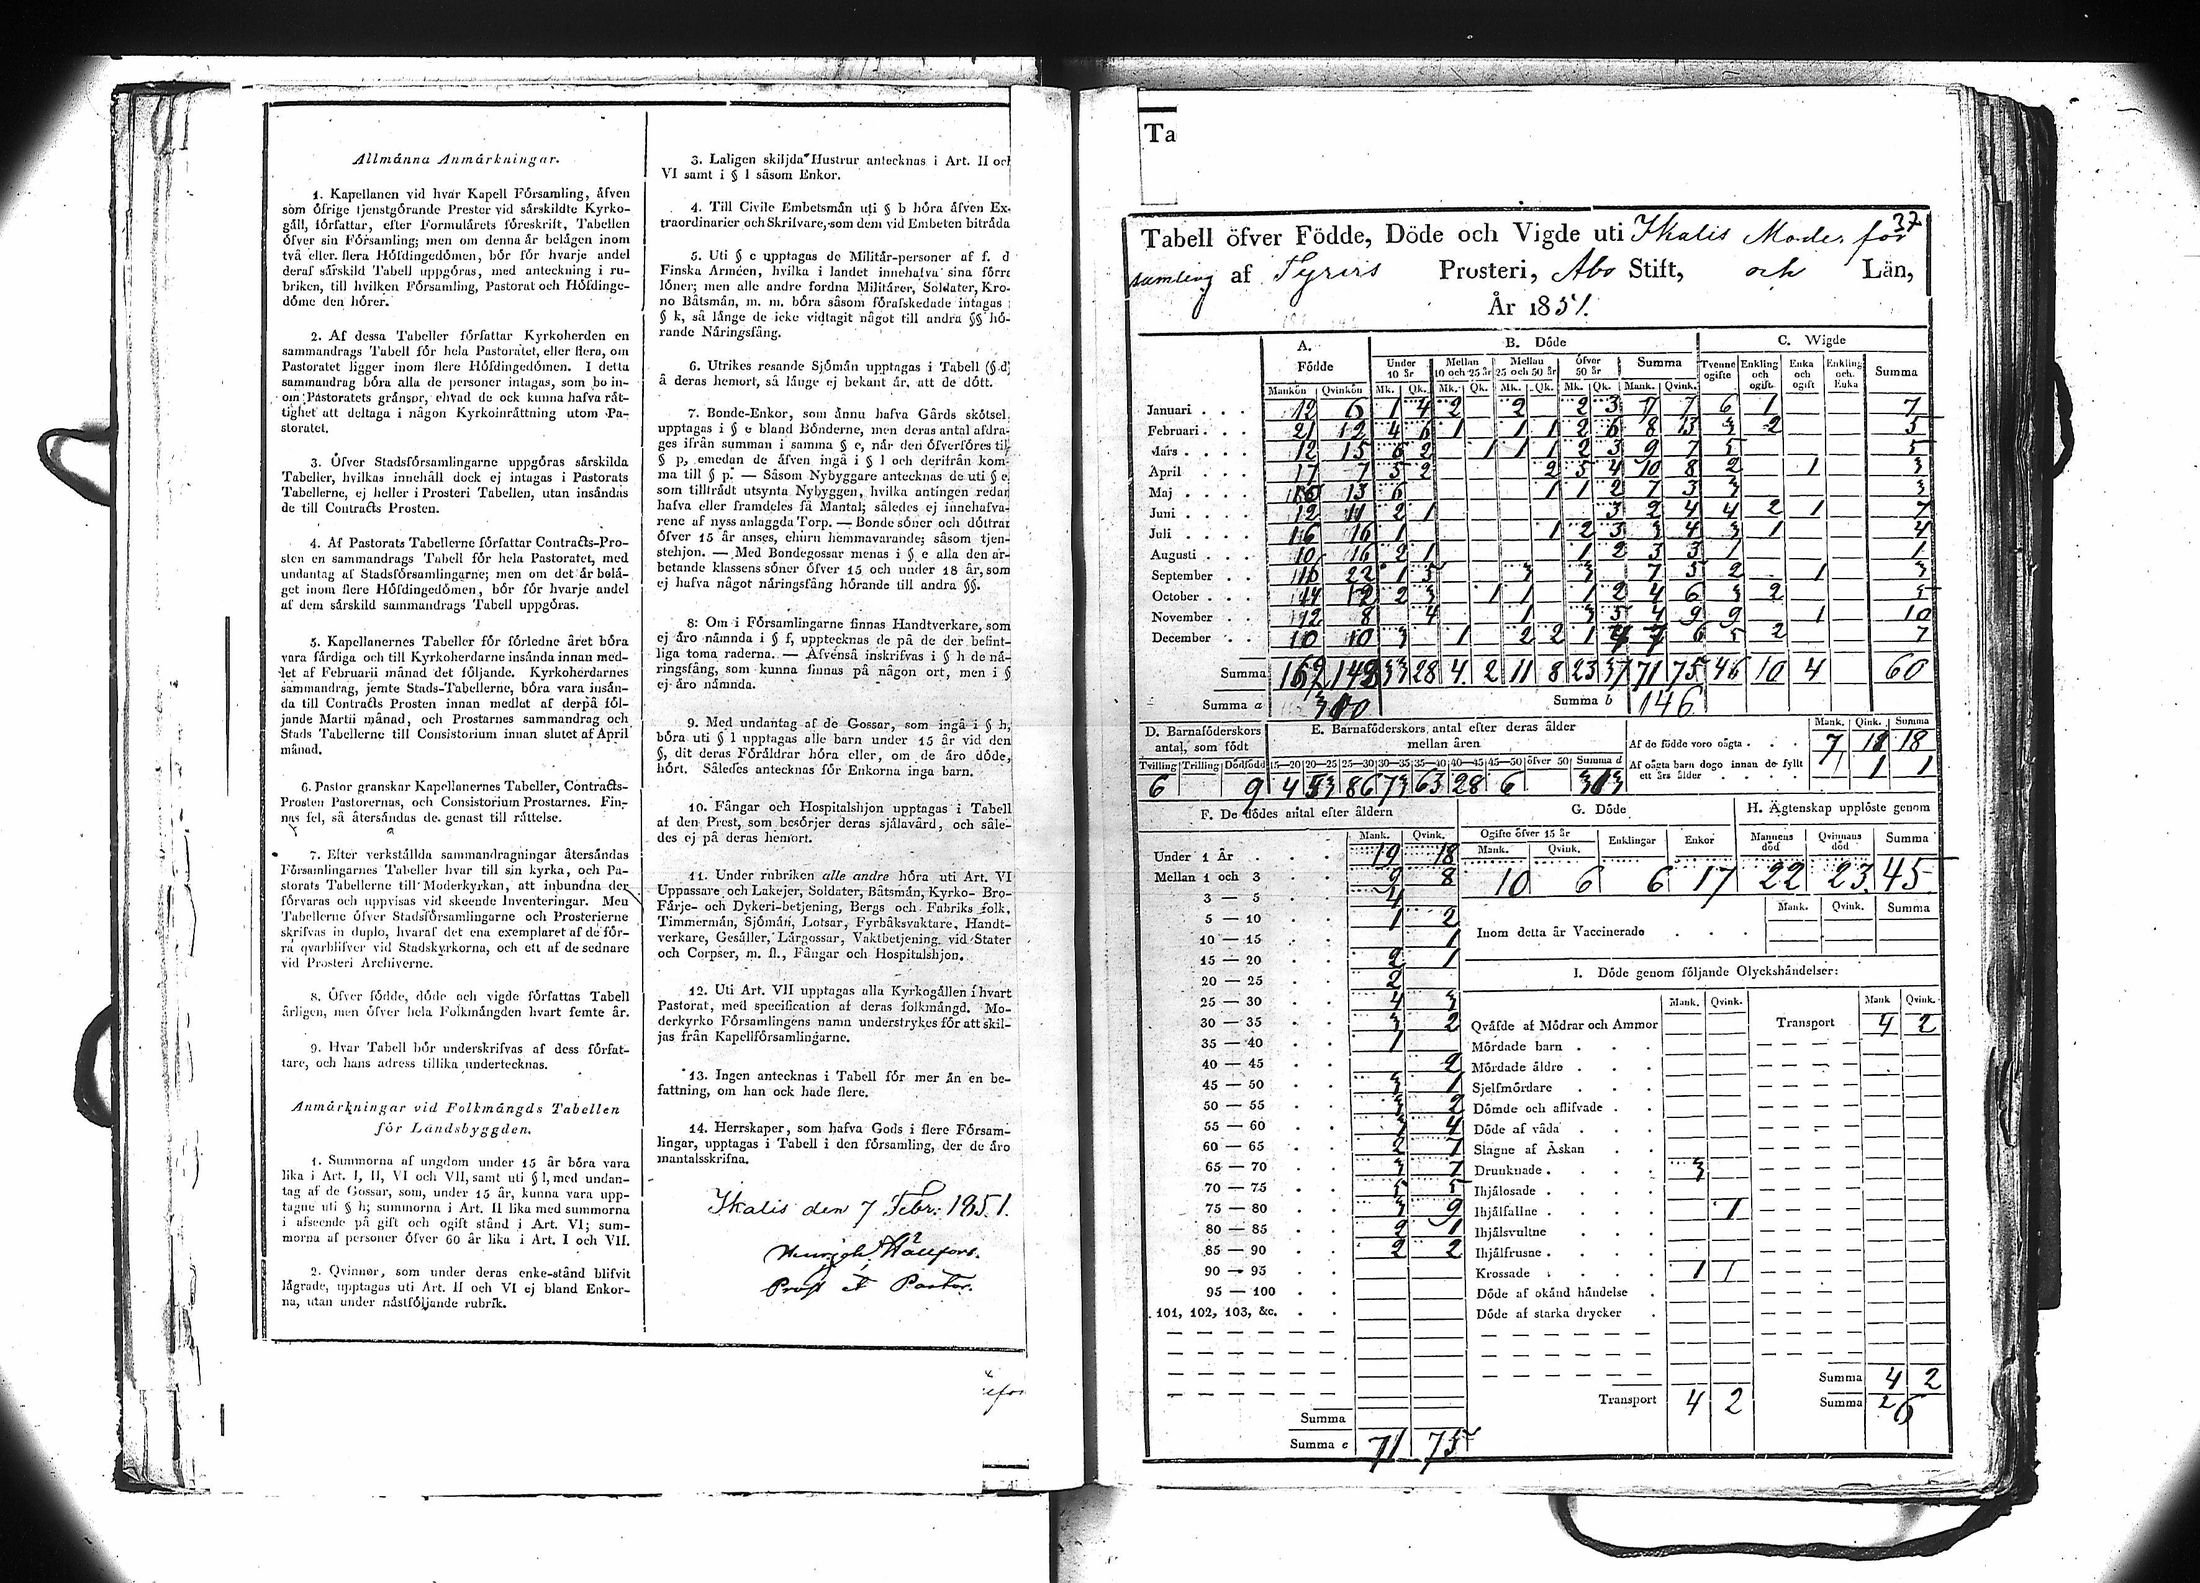 Allmänna Anmärkningar.
1. Kapellanen vid hvar Kapell Församling, äfven
som öfrige tjenstgörande Prester vid särskildte Kyrko-
gäll, författar, efter Formulärets föreskrift, Tabellen
öfver sin Församling; men om denna är belägen inom
två eller flera Höfdingedömen, bör för hvarje andel
deraf särskild Tabell uppgöras, med anteckning i ru-
briken, till hvilken Församling, Pastorat och Höfdinge-
döme den hörer.
2. Af dessa Tabeller författar Kyrkoherden en
sammandrags Tabell för hela Pastoratet, eller flera, om
Pastoratet ligger inom flere Höfdingedömen. I detta
sammandrag böra alla de personer intagas, som bo in-
om Pastoratets gränsor, ehvad de ock kunna hafva rät-
tighet att deltaga i någon Kyrkoinrättning utom Pa-
storatet.
3. Öfver Stadsförsamlingarne uppgöras särskilda
Tabeller, hvilkas innehåll dock ej intagas i Pastorats
Tabellerne, ej heller i Prosteri Tabellen, utan insändas
de till Contracts Prosten.
4. Af Pastorats Tabellerne författar Contracts-Pro-
sten en sammandrags Tabell för hela Pastoratet, med
undantag af Stadsförsamlingarne; men om det är belä-
get inom flere Höfdingedömen, bör för hvarje andel
af dem särskild sammandrags Tabell uppgöras.
5. Kapellanernes Tabeller för förledne året böra
vara färdiga och till Kyrkoherdarne insända innan med-
let af Februarii månad det följande. Kyrkoherdarnes
sammandrag, jemte Stads-Tabellerne, böra vara insän-
da till Contracts Prosten innan medlet af derpå föl-
jande Martii månad, och Prostarnes sammandrag och
Stads Tabellerne till Consistorium innan slutet af April
månad.
6. Pastor granskar Kapellanernes Tabeller, Contracts-
Prosten Pastorernas, och Consistorium Prostarnes. Fin-
nas fel, så återsändas de genast till rättelse.
7. Efter verkställda sammandragningar återsändas
Församlingarnes Tabeller hvar till sin kyrka, och Pa-
storats Tabellerne till Moderkyrkan, att inbundna der
förvaras och uppvisas vid skeende Inventeringar. Men
Tabellerne öfver Stadsförsamlingarne och Prosterierne
skrifvas in duplo, hvaraf det ena exemplaret af de för-
ra qvarblifver vid Stadskyrkorna, och ett af de sednare
vid Prosteri Archiverne.
8. Öfver födde, döde och vigde författas Tabell
årligen, men öfver hela Folkmängden hvart femte år.
9. Hvar Tabell bör underskrifvas af dess förfat-
tare, och hans adress tillika undertecknas.
Anmärkningar vid Folkmängds Tabellen
för Landsbyggden.
1. Summorna af ungdom under 15 år böra vara
lika i Art. I, II, VI och VII, samt uti § l, med undan-
tag af de Gossar, som, under 15 år, kunna vara upp-
tagne uti § h; summorna i Art. II lika med summorna
i afseende på gift och ogift stånd i Art. VI; sum-
morna af personer öfver 60 år lika i Art. I och VII.
2. Qvinnor, som under deras enke-stånd blifvit
lägrade, upptagas uti Art. II och VI ej bland Enkor-
na, utan under nästföljande rubrik.
3. Laligen skiljda Hustrur antecknas i Art. II och
VI samt i § l såsom Enkor.
4. Till Civile Embetsmän uti § b höra äfven Ex-
traordinarier och Skrifvare, som dem vid Embeten biträda
5. Uti § c upptagas de Militär-personer af f. d
Finska Arméen, hvilka i landet innehafva sina förre
löner; men alle andre fordna Militärer, Soldater, Kro-
no Båtsmän, m. m. böra såsom förafskedade intagas i
§ k, så länge de icke vidtagit något till andra §§ hö-
rande Näringsfång.
6. Utrikes resande Sjömän upptagas i Tabell (§ d)
å deras hemort, så länge ej bekant är, att de dött.
7. Bonde-Enkor, som ännu hafva Gårds skötsel,
upptagas i § e bland Bönderne, men deras antal afdra-
ges ifrån summan i samma § e, när den öfverföres till
§ p, emedan de äfven ingå i § l och derifrån kom-
ma till § p. — Såsom Nybyggare antecknas de uti § e
som tillträdt utsynta Nybyggen, hvilka antingen redan
hafva eller framdeles få Mantal; således ej innehafva-
rene af nyss anlagda Torp. — Bonde söner och döttrar
öfver 15 år anses, ehuru hemmavarande; såsom tjen-
stehjon. — Med Bondegossar menas i § e alla den ar-
betande klassens söner öfver 15 och under 18 år, som
ej hafva något näringsfång hörande till andra §§.
8: Om i Församlingarne finnas Handtverkare, som
ej äro nämnda i § f, upptecknas de på de der befint-
liga toma raderna. — Äfvenså inskrifvas i § h de nä-
ringsfång, som kunna finnas på någon ort, men i §
ej äro nämnda.
9. Med undantag af de Gossar, som ingå i § h,
böra uti § l upptagas alle barn under 15 år vid den
§, dit deras Föräldrar höra eller, om de äro döde,
hört. Således antecknas för Enkorna inga barn.
10. Fångar och Hospitalshjon upptagas i Tabell
af den Prest, som besörjer deras själavård, och såle-
des ej på deras hemort.
11. Under rubriken alle andre höra uti Art. VI
Uppassare och Lakejer, Soldater, Båtsmän, Kyrko- Bro-
Färje- och Dykeri-betjening, Bergs och Fabriks folk,
Timmermän, Sjömän, Lotsar, Fyrbåksvaktare, Handt-
verkare, Gesäller, Lärgossar, Vaktbetjening vid Stater
och Corpser, m. fl., Fångar och Hospitalshjon.
12. Uti Art. VII upptagas alla Kyrkogällen i hvart
Pastorat, med specification af deras folkmängd. Mo-
derkyrko Församlingens namn understrykes för att skil-
jas från Kapellförsamlingarne.
13. Ingen antecknas i Tabell för mer än en be-
fattning, om han ock hade flere.
14. Herrskaper, som hafva Gods i flere Försam-
lingar, upptagas i Tabell i den församling, der de äro
mantalsskrifna.
Ikalis den 7 Febr. 1851.
Henrich Hällfors.
Prost et Pastor.
Ta
37
Tabell öfver Födde, Döde och Vigde uti Ikalis Moder för
samling af Tyrvis Prosteri, Åbo Stift, och Län,
År 1851.
A. Födde B. Döde C. Wigde
Under 10 år Mellan 10 och 25 år Mellan 25 och 50 år Öfver 50 år Summa Tvenne ogifte Enkling och ogift Enka och ogift Enkling och Enka Summa
Mankön Qvinkön Mk. Qk. Mk. Qk. Mk. Qk. Mk. Qk. Mank. Qvink.
Januari 12 6 1 4 2 2 2 3 7 7 6 1 7
Februari 21 12 4 6 1 1 1 2 6 8 13 3 2 5
Mars 12 15 6 2 1 1 1 2 3 9 7 5 5
April 17 7 5 2 2 5 4 10 8 2 1 3
Maj 13 6 1 1 2 7 3 3 3
Juni 12 11 2 1 3 2 4 4 2 1 7
Juli 16 16 1 1 2 3 3 4 3 1 4
Augusti 10 16 2 1 1 2 3 3 1 1
September 16 22 1 5 3 3 7 5 2 1 3
October 14 12 2 3 1 1 1 2 4 6 3 2 5
November 12 8 4 1 3 5 4 9 9 1 10
December 10 10 3 1 2 2 1 4 7 6 5 2 7
Summa 162 148 33 28 4 2 11 8 23 37 71 75 46 10 4 60
Summa a 310 Summa b 146
D. Barnaföderskors antal, som födt
Tvilling Trilling Dödfödd
6 9
E. Barnaföderskors antal efter deras ålder
mellan åren
15—20 20—25 25—30 30—35 35—40 40—45 45—50 öfver 50 Summa d
4 53 86 73 63 28 6 313
Mank. Qink. Summa
Af de födde voro oägta 7 11 18
Af oägta barn dogo innan de fyllt
ett års ålder 1 1
F. De dödes antal efter åldern
Mank. Qvink.
Under 1 År 19 18
Mellan 1 och 3 9 8
3 — 5 4
5 — 10 1 2
10 — 15 1
15 — 20 2 1
20 — 25 2
25 — 30 4 3
30 — 35 3 2
35 — 40 1
40 — 45 2
45 — 50 3 1
50 — 55 3 2
55 — 60 3 4
60 — 65 2 7
65 — 70 3 7
70 — 75 5 5
75 — 80 3 9
80 — 85 2 1
85 — 90 2 2
90 — 95
95 — 100
101, 102, 103, &c.
Summa
Summa e 71 75
G. Döde
Ogifte öfver 15 år Enklingar Enkor
Mank. Qvink.
10 6 6 17
H. Ägtenskap upplöste genom
Mannens död Qvinnans död Summa
22 23 45
Mank. Qvink. Summa
Inom detta år Vaccinerade
I. Döde genom följande Olyckshändelser:
Mank. Qvink. Mank Qvink.
Qväfde af Mödrar och Ammor Transport 4 2
Mördade barn
Mördade äldre
Sjelfmördare
Dömde och aflifvade
Döde af våda
Slagne af Åskan
Drunknade 3
Ihjälosade
Ihjälfallne 1
Ihjälsvultne
Ihjälfrusne
Krossade 1 1
Döde af okänd händelse
Döde af starka drycker
Summa 4 2
Transport 4 2 Summa 6